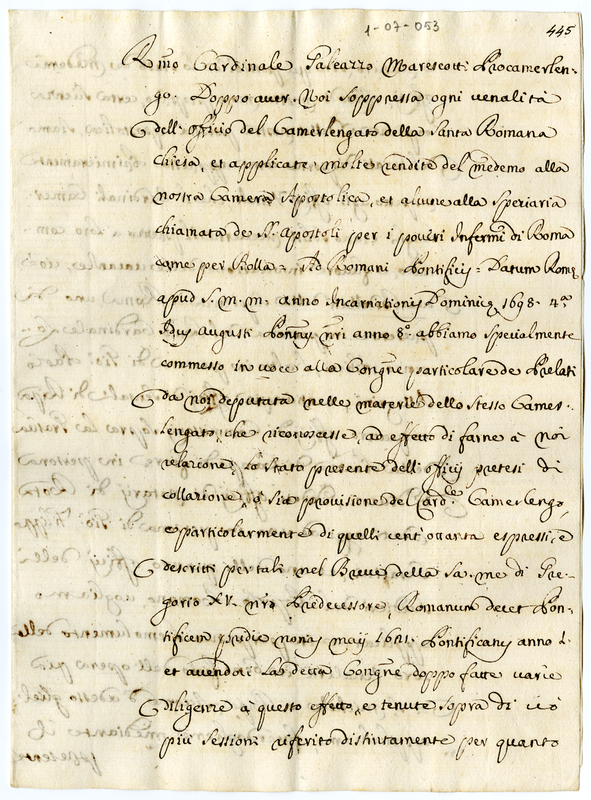 1-07-053
445
R.mo Cardinale Galeazzo Marescotti Procamerlen-
go. Doppo aver Noi soppressa ogni venalità
dell'offitio del Camerlengato della Santa Romana
Chiesa, et applicate molte rendite del medemo alla
nostra Camera Apostolica, et alcune alla Speziaria
chiamata de SS. Apostoli per i poveri Infermi di Roma
come per Bolla = Ad Romani Pontificis = Datum Romæ
apud S. M. M. anno Incarnationis Dominicæ 1698. 4.to
Idus Augusti Pontus nri anno 8.o abbiamo specialmente
commesso in voce alla Congne particolare de Prelati
da noi deputata nelle materie dello stesso Camer-
lengato, che riconoscesse, ad effetto di farne à noi
relazione, lo stato presente dell'offitij pretesi di
collazione, ò sia provisione del Card.le Camerlengo,
e particolarmente di quelli cent'ottanta espressi, e
descritti per tali nel Breve della Sa. me. di Gre-
gorio XV. nro Predecessore, Romanum decet Pon-
tificem pridie nonas maij 1621. Pontificatus anno 1.
et avendoci la detta Congne, doppo fatte varie
diligenze a questo effetto, e tenute sopra di ciò
più sessioni riferito distintamente per quanto